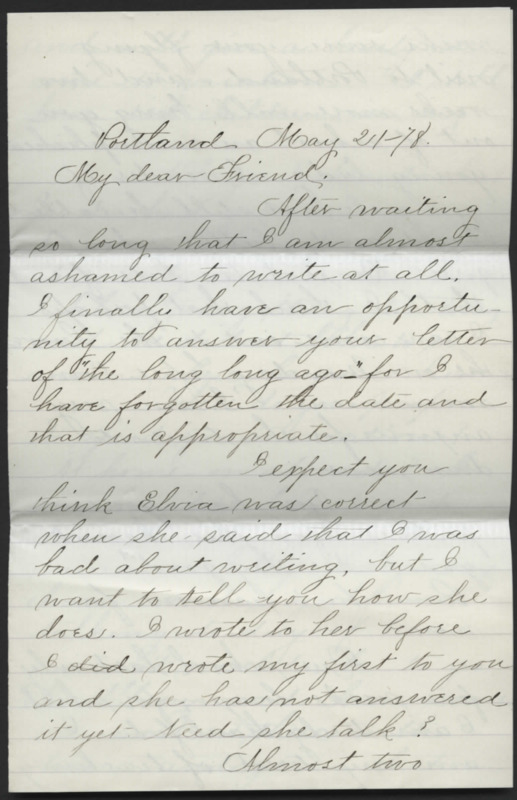 Portland May 21-78.
My dear Friend,
After waiting
so long that I am almost
ashamed to write at all.
I finally have an opportu-
nity to answer your letter
of "the long long ago-" for I
have forgotten the date and
that is appropriate.
I expect you
think Elvia was correct
when she said that I was
bad about writing, but I
want to tell you how she
does. I wrote to her before
I did wrote my first to you
and she has not answered
it yet. Need she talk?
Almost two